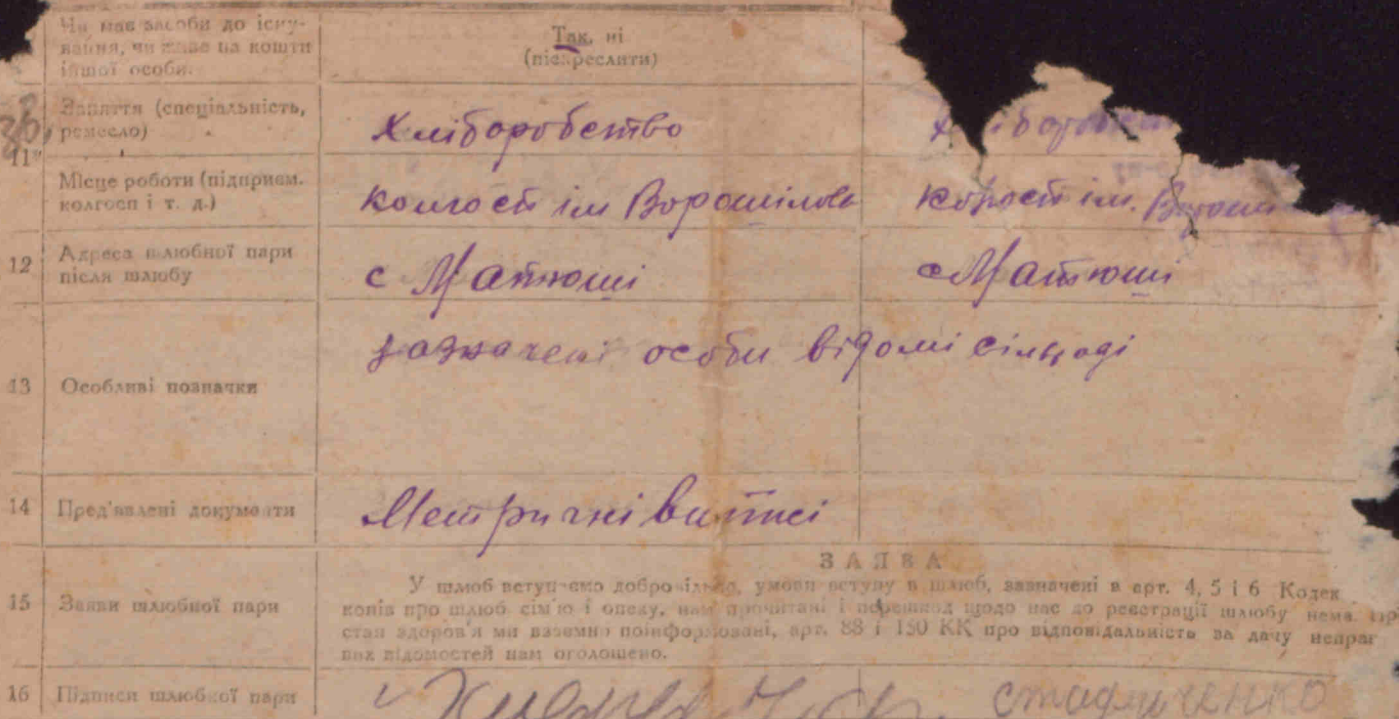 Чи має засоби до існу-
вання, чи живе на кошти
іншої особи.
Так, ні
(підкреслити)
Заняття (спеціальність,
ремесло)
Хліборобство
11
Місце роботи (підприєм.
колгосп і т. д.)
Колгосп ім Ворошилова
ім.
12 Адреса шлюбної пари
після шлюбу
с Матюші с Матюші
13 Особливі позначки
Зазначені особи відомі сільраді
14 Пред'явлені документи
Метричні виписі
ЗАЯВА
15 Заяви шлюбної пари
У шлюб вступаємо добровільно, умови вступу в шлюб, зазначені в арт. 4, 5 і 6 Кодек
конів про шлюб сім'ю і опеку, нам прочитані і перешкод щодо нас до реєстрації шлюбу нема. Про
стан здоров'я ми взаємно поінформовані, арт. 88 і 150 КК про відповідальність за дачу неправ
вих відомостей нам оголошено.
16 Підписи шлюбної пари